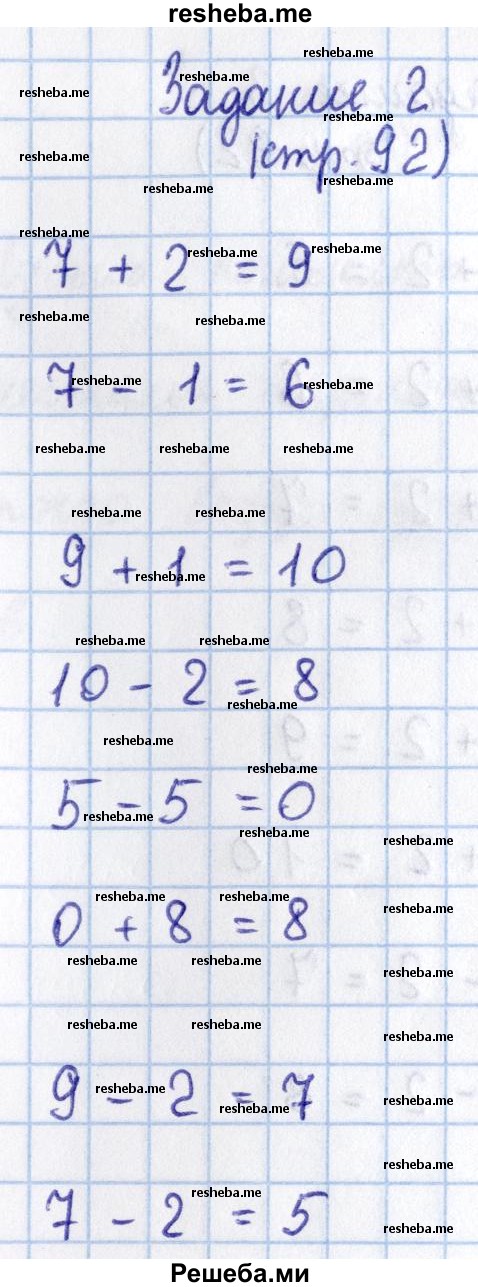 resheba.me
Задание 2
(стр. 92)
7 + 2 = 9
7 - 1 = 6
9 + 1 = 10
10 - 2 = 8
5 - 5 = 0
0 + 8 = 8
9 - 2 = 7
7 - 2 = 5
Решеба.ми